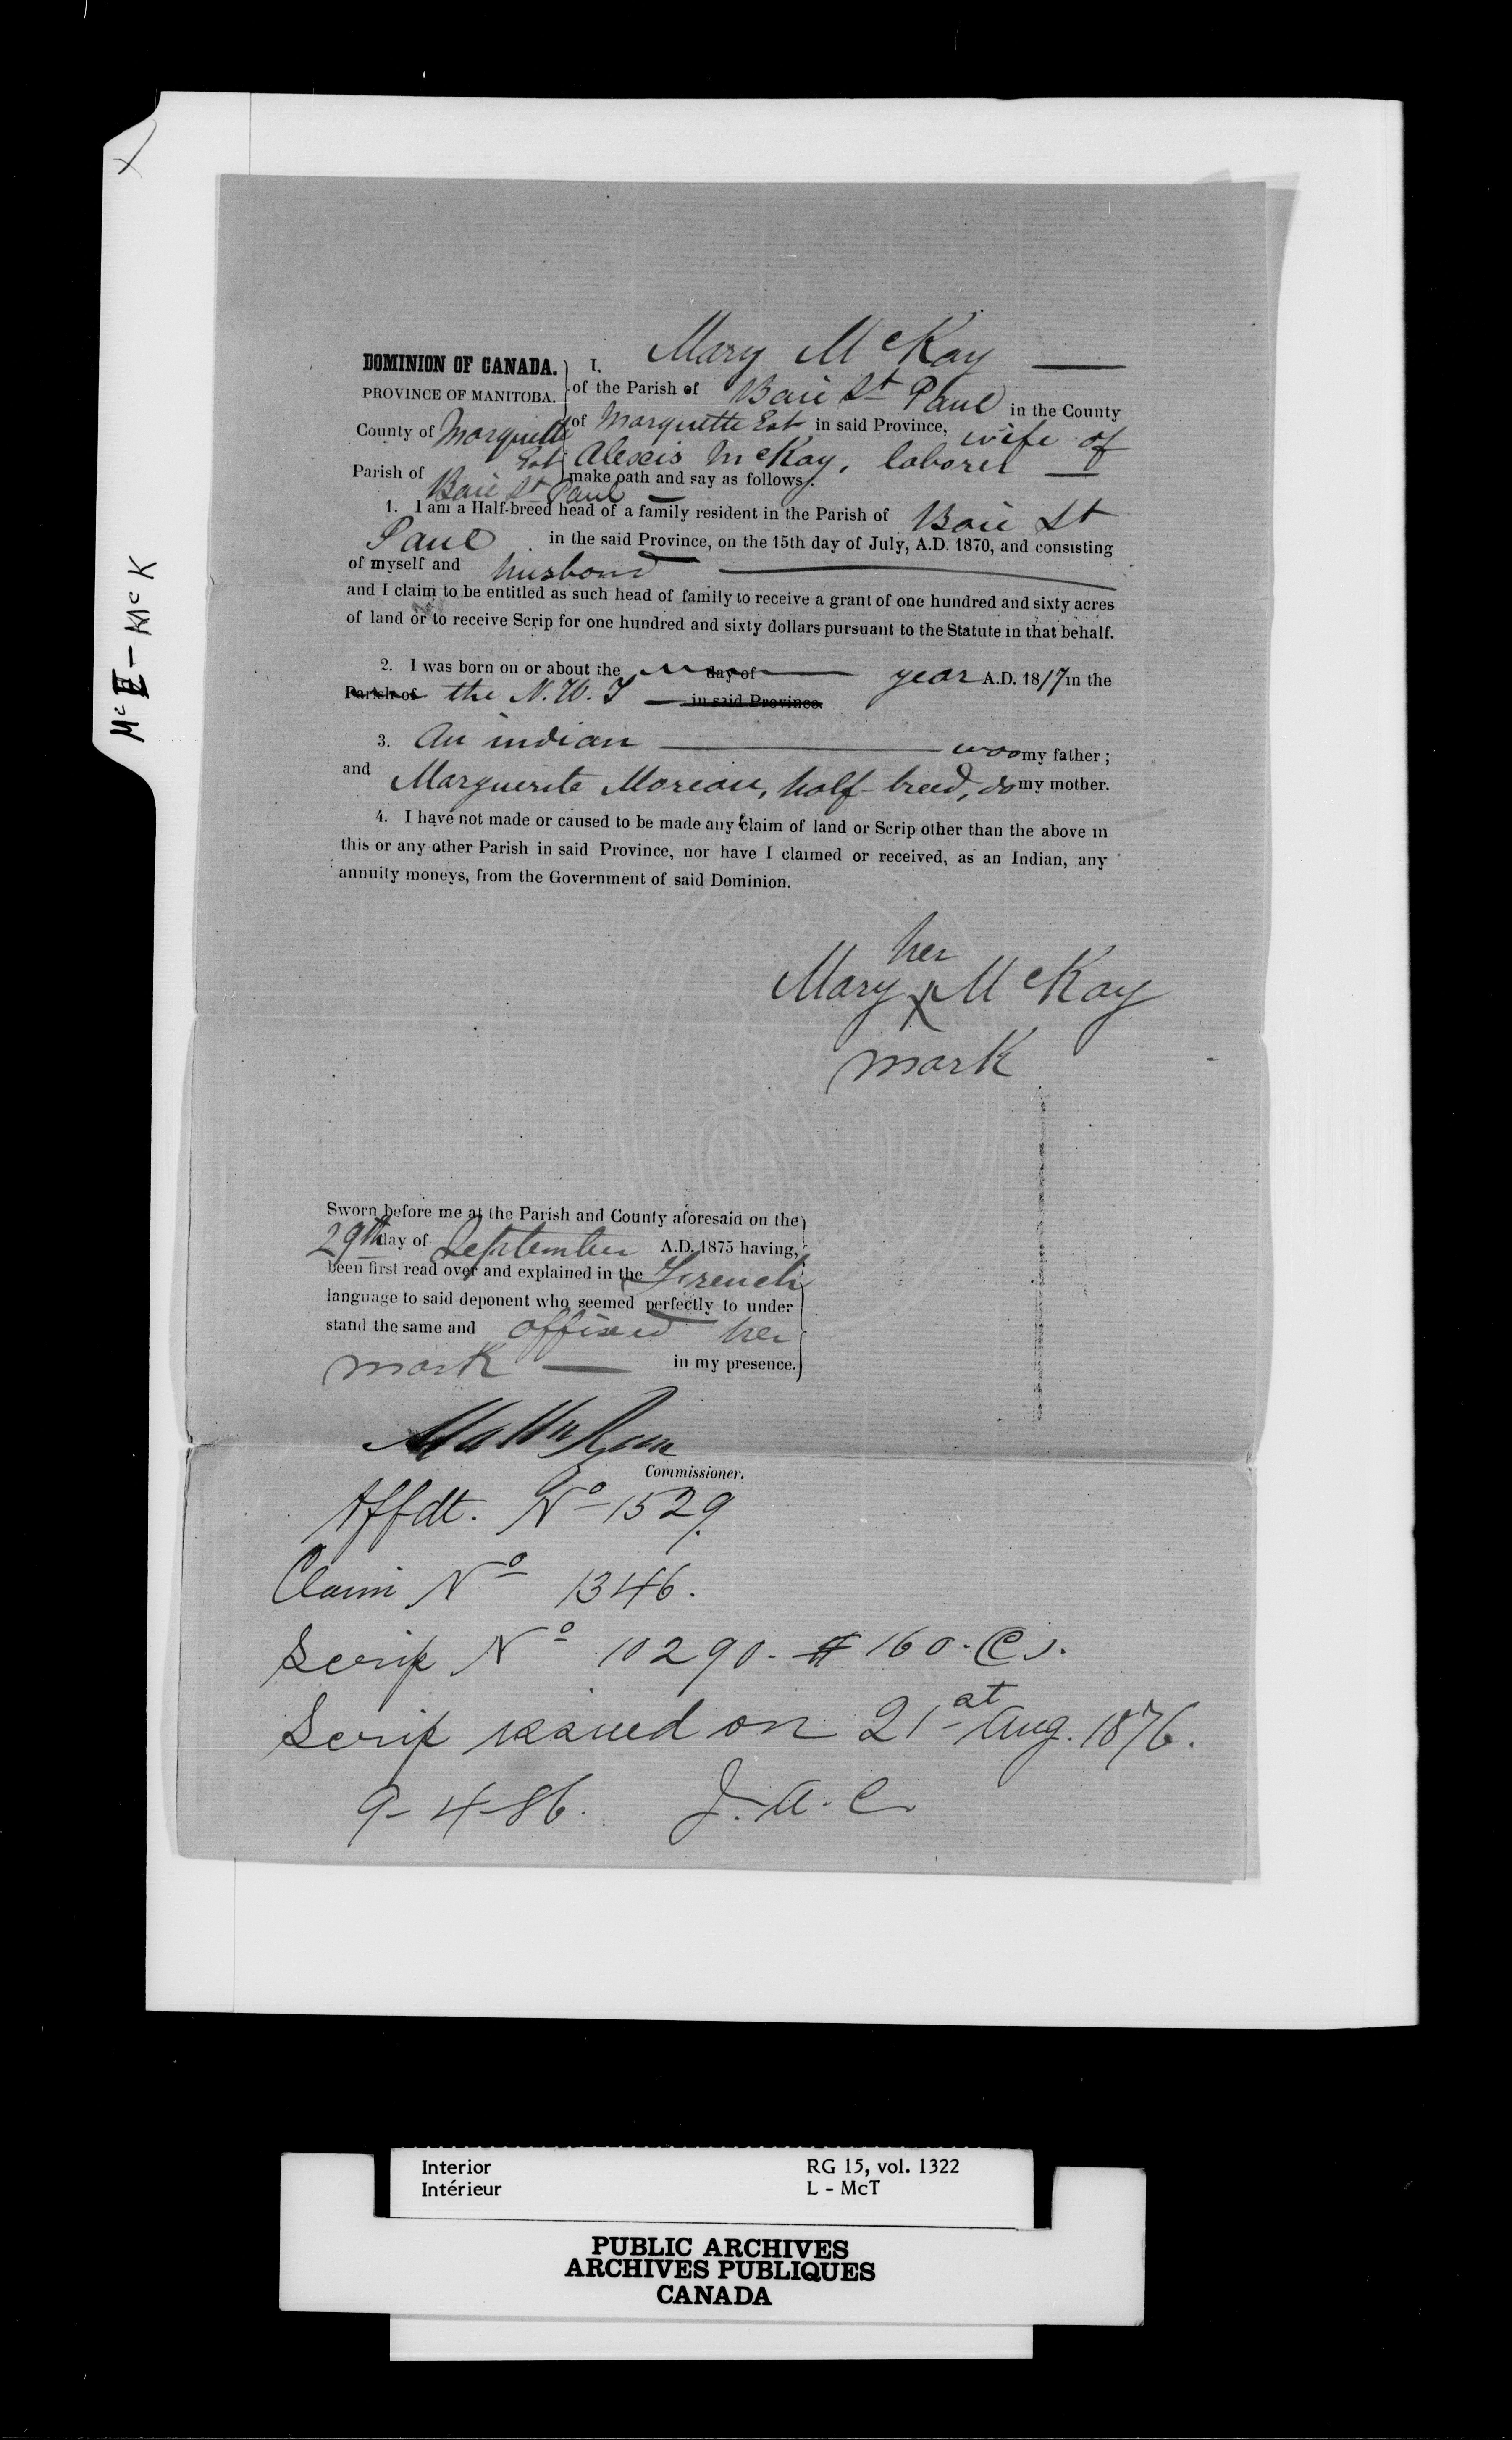 Mc E - McK
DOMINION OF CANADA.
PROVINCE OF MANITOBA.
County of Marquette
Est
Parish of Baie St Paul
I. Mary McKay
of the Parish of Baie St Paul in the County
of Marquette Est in said Province, wife of
Alexis McKay, laborer
make oath and say as follows:
1. I am a Half-breed head of a family resident in the Parish of Baie St
Paul in the said Province, on the 15th day of July, A.D. 1870, and consisting
of myself and husband
and I claim to be entitled as such head of family to receive a grant of one hundred and sixty acres
of land or to receive Scrip for one hundred and sixty dollars pursuant to the Statute in that behalf.
2. I was born on or about the day of year A.D. 1817 in the
Parish of the N. W. T in said Province.
3. An indian was my father;
and Marguerite Moreau, half-breed, do my mother.
4. I have not made or caused to be made any claim of land or Scrip other than the above in
this or any other Parish in said Province, nor have I claimed or received, as an Indian, any
annuity moneys, from the Government of said Dominion.
her
Mary X McKay
mark
Sworn before me at the Parish and County aforesaid on the
29th day of September A.D. 1875 having,
been first read over and explained in the French
language to said deponent who seemed perfectly to under
stand the same and affixed her
mark in my presence.
Commissioner.
Affdt. No 1529.
Claim No 1346.
Scrip No 10290. $160.
Scrip issued on 21st Aug. 1876.
9-4-86. J. A. C.
Interior RG 15, vol. 1322
Intérieur L - McT
PUBLIC ARCHIVES
ARCHIVES PUBLIQUES
CANADA